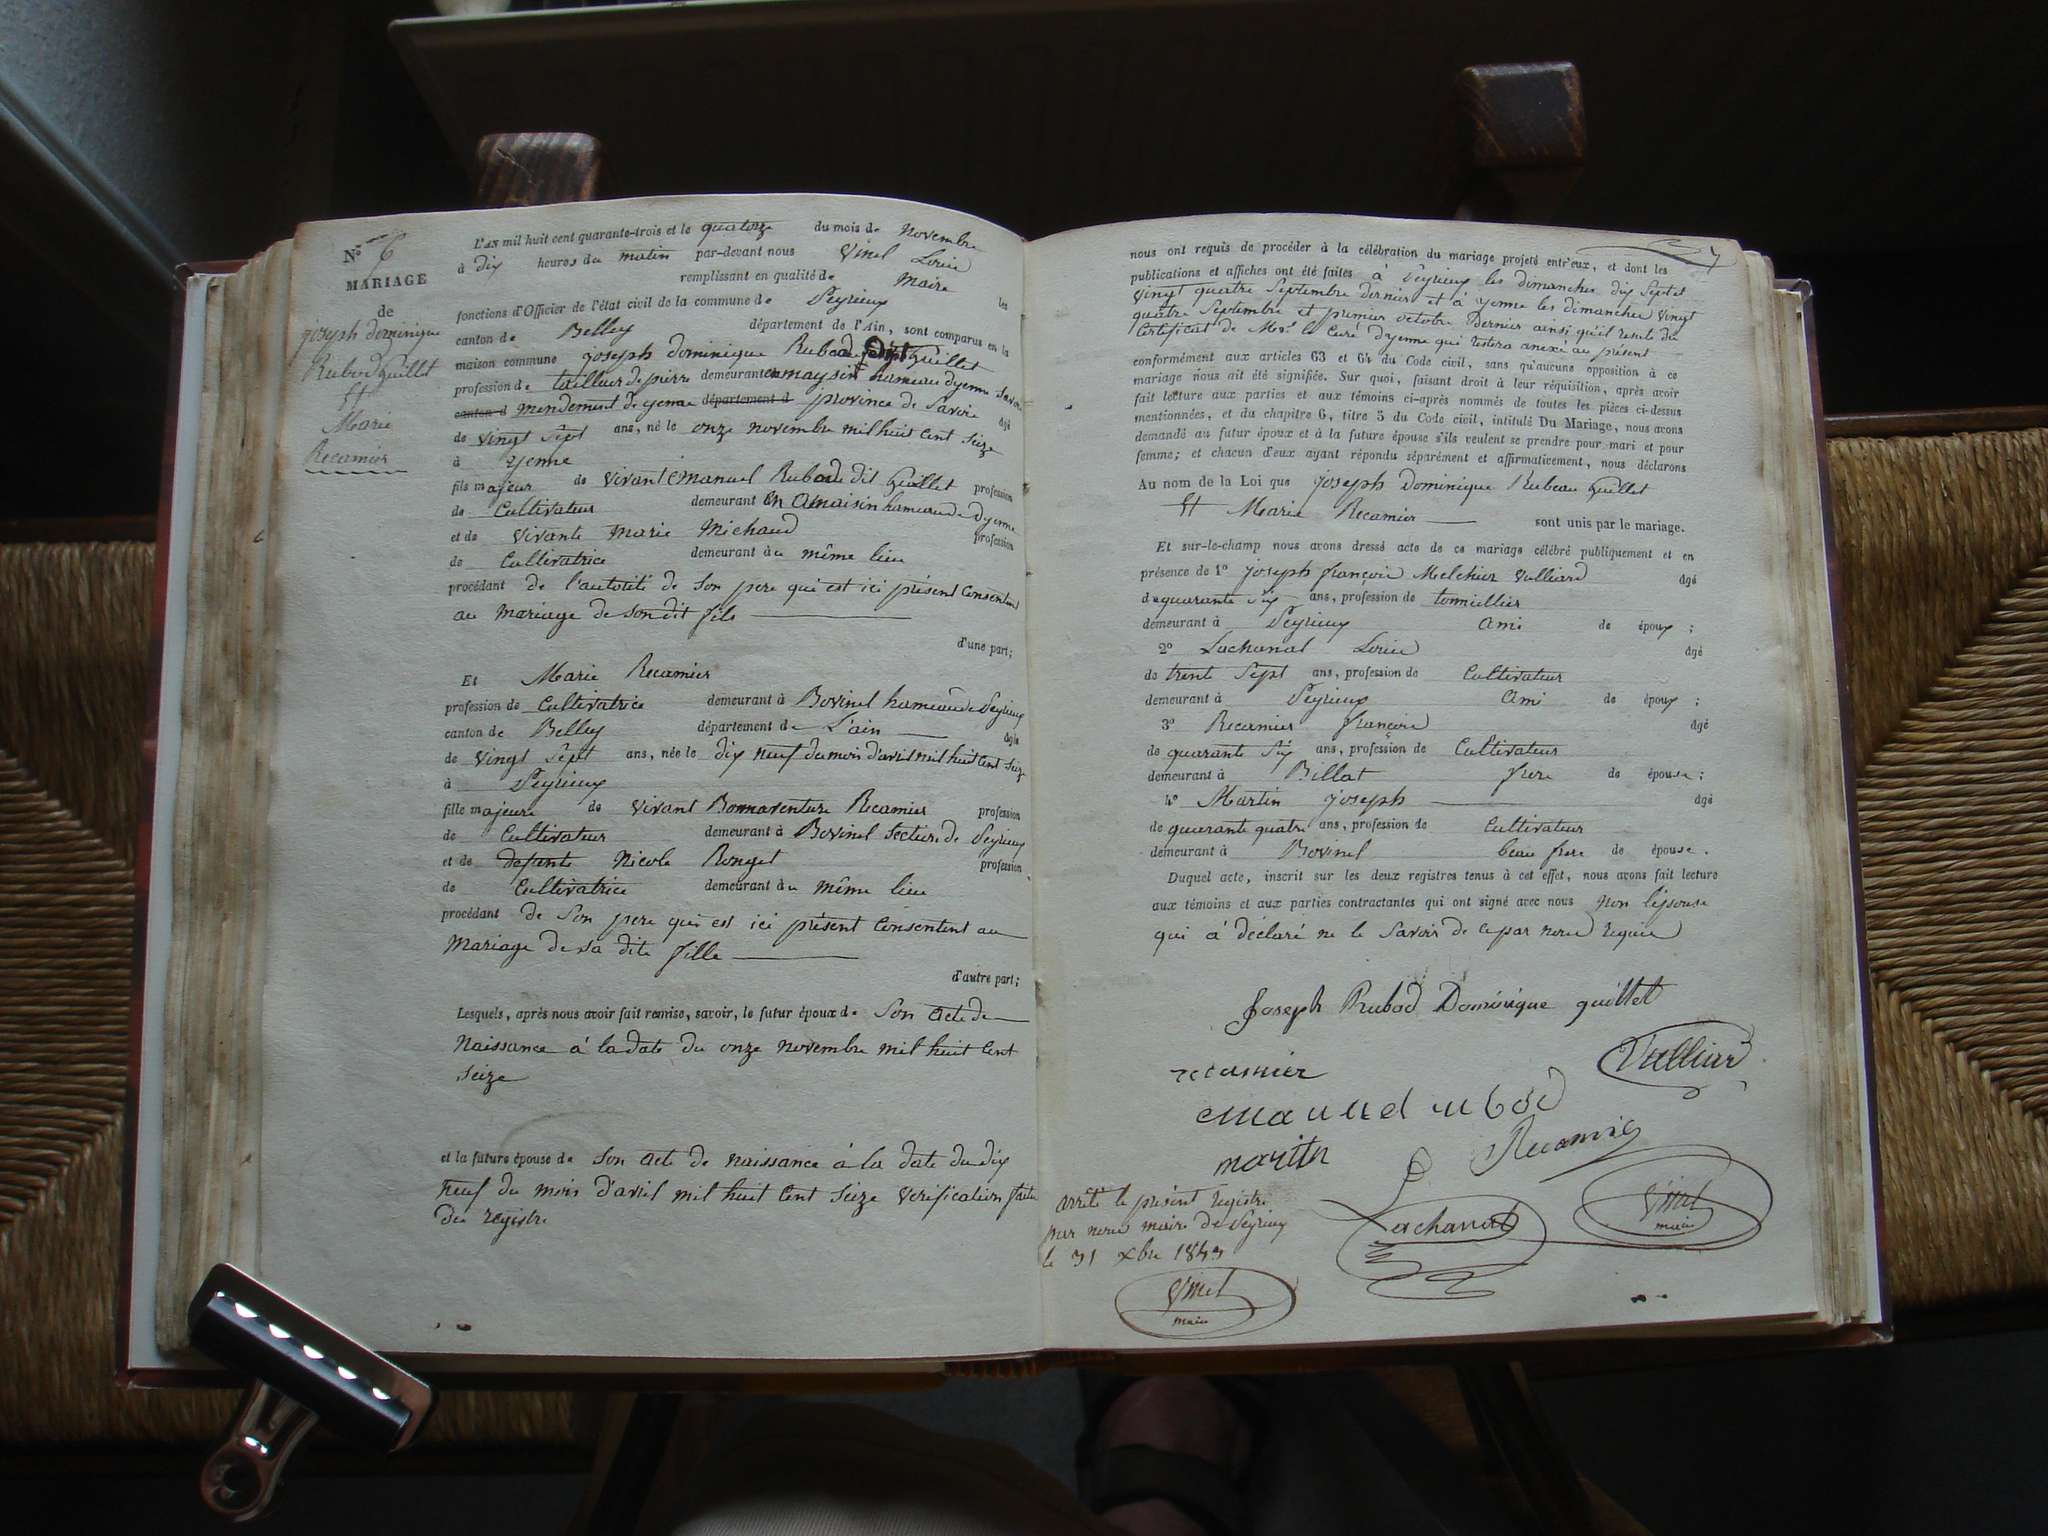 N° 6
MARIAGE
de
joseph dominique
Rubod Guillet
Et
Marie
Recamier
L'AN mil huit cent quarante-trois et le quatorze du mois de novembre
à dix heures du matin par-devant nous Vinel Louis
remplissant en qualité de Maire les
fonctions d'Officier de l'état civil de la commune de Peyrieux
canton de Belley département de l'Ain, sont comparus en la
maison commune joseph dominique Rubod dit Guillet
profession de tailleur de pierre demeurant en maysin hameau dyenne Savoie
canton d mendement de yenne département d province de Savoie âgé
de vingt sept ans, né le onze novembre mil huit cent seize
à yenne
fils majeur de vivant Emanuel Rubod dit Guillet profession
de Cultivateur demeurant En Amaisin hameau de dyenne
et de vivante marie Michaud profession
de Cultivatrice demeurant au même lieu
procédant de l'autorité de son pere qui est ici présent Consentent
au mariage de son dit fils
d'une part;
Et Marie Recamier
profession de Cultivatrice demeurant à Bovinel hameau de Peyrieux
canton de Belley département de L'ain âgée
de vingt sept ans, née le dix neuf du mois d'avril mil huit cent seize
à Peyrieux
fille majeure de vivant Bonnaventure Recamier profession
de Cultivateur demeurant à Bovinel section de Peyrieux
et de defunte Nicole Ronget profession
de Cultivatrice demeurant au même lieu
procédant de son pere qui est ici présent Consentent au
mariage de sa dite fille
d'autre part;
Lesquels, après nous avoir fait remise, savoir, le futur époux de son acte de
Naissance à la date du onze novembre mil huit cent
seize
et la future épouse de son acte de naissance à la date du dix
neuf du mois d'avril mil huit cent seize verification faite
du registre
nous ont requis de procéder à la célébration du mariage projeté entr'eux, et dont les
publications et affiches ont été faites à Peyrieux les dimanches dix Sept et
vingt quatre Septembre dernier et à yenne les dimanches vingt
quatre Septembre et premier octobre Dernier ainsi qu'il resulte du
Certificat de Mr. le Curé dyenne qui restera anexé au présent
conformément aux articles 63 et 64 du Code civil, sans qu'aucune opposition à ce
mariage nous ait été signifiée. Sur quoi, faisant droit à leur réquisition, après avoir
fait lecture aux parties et aux témoins ci-après nommés de toutes les pièces ci-dessus
mentionnées, et du chapitre 6, titre 5 du Code civil, intitulé Du Mariage, nous avons
demandé au futur époux et à la future épouse s'ils veulent se prendre pour mari et pour
femme; et chacun d'eux ayant répondu séparément et affirmativement, nous déclarons
Au nom de la Loi que joseph Dominique Rubeau Guillet
Et Marie Recamier sont unis par le mariage.
Et sur-le-champ nous avons dressé acte de ce mariage célébré publiquement et en
présence de 1° joseph françois Melchior Vulliard âgé
de quarante six ans, profession de tonnellier
demeurant à Peyrieux Ami de époux;
2° Lachanal Louis âgé
de trent Sept ans, profession de Cultivateur
demeurant à Peyrieux Ami de époux;
3° Recamier françois âgé
de quarante six ans, profession de Cultivateur
demeurant à Billat frere de épouse;
4° Martin joseph âgé
de quarante quatre ans, profession de Cultivateur
demeurant à Bovinel beau frere de épouse.
Duquel acte, inscrit sur les deux registres tenus à cet effet, nous avons fait lecture
aux témoins et aux parties contractantes qui ont signé avec nous non l'épouse
qui à déclaré ne le savoir de ce par nous requise
Joseph Rubod Dominique guillet
recamier
Vulliard
emanuel rubod
Recamier
martin
Lachanal
Vinel
maire
arrêté le présent registre
par nous maire de Peyrieux
le 31 xbre 1843
Vinel
maire